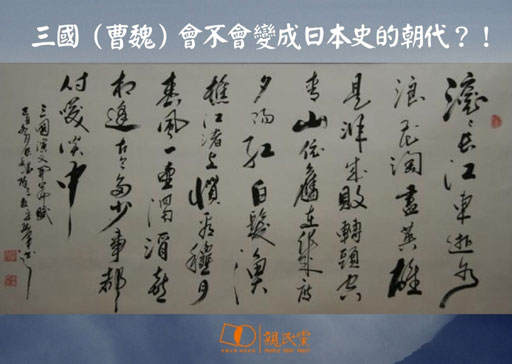 三國（曹魏）會不會變成日本史的朝代？！
滾々長江東逝水
浪花淘盡英雄
是非成敗轉頭空
青山依舊在幾度
夕陽紅白髮漁
樵江渚上慣看秋月
春風一壺濁酒喜
相逢古今多少事都
付笑談中
三國演義
親民黨
PEOPLE FIRST PARTY